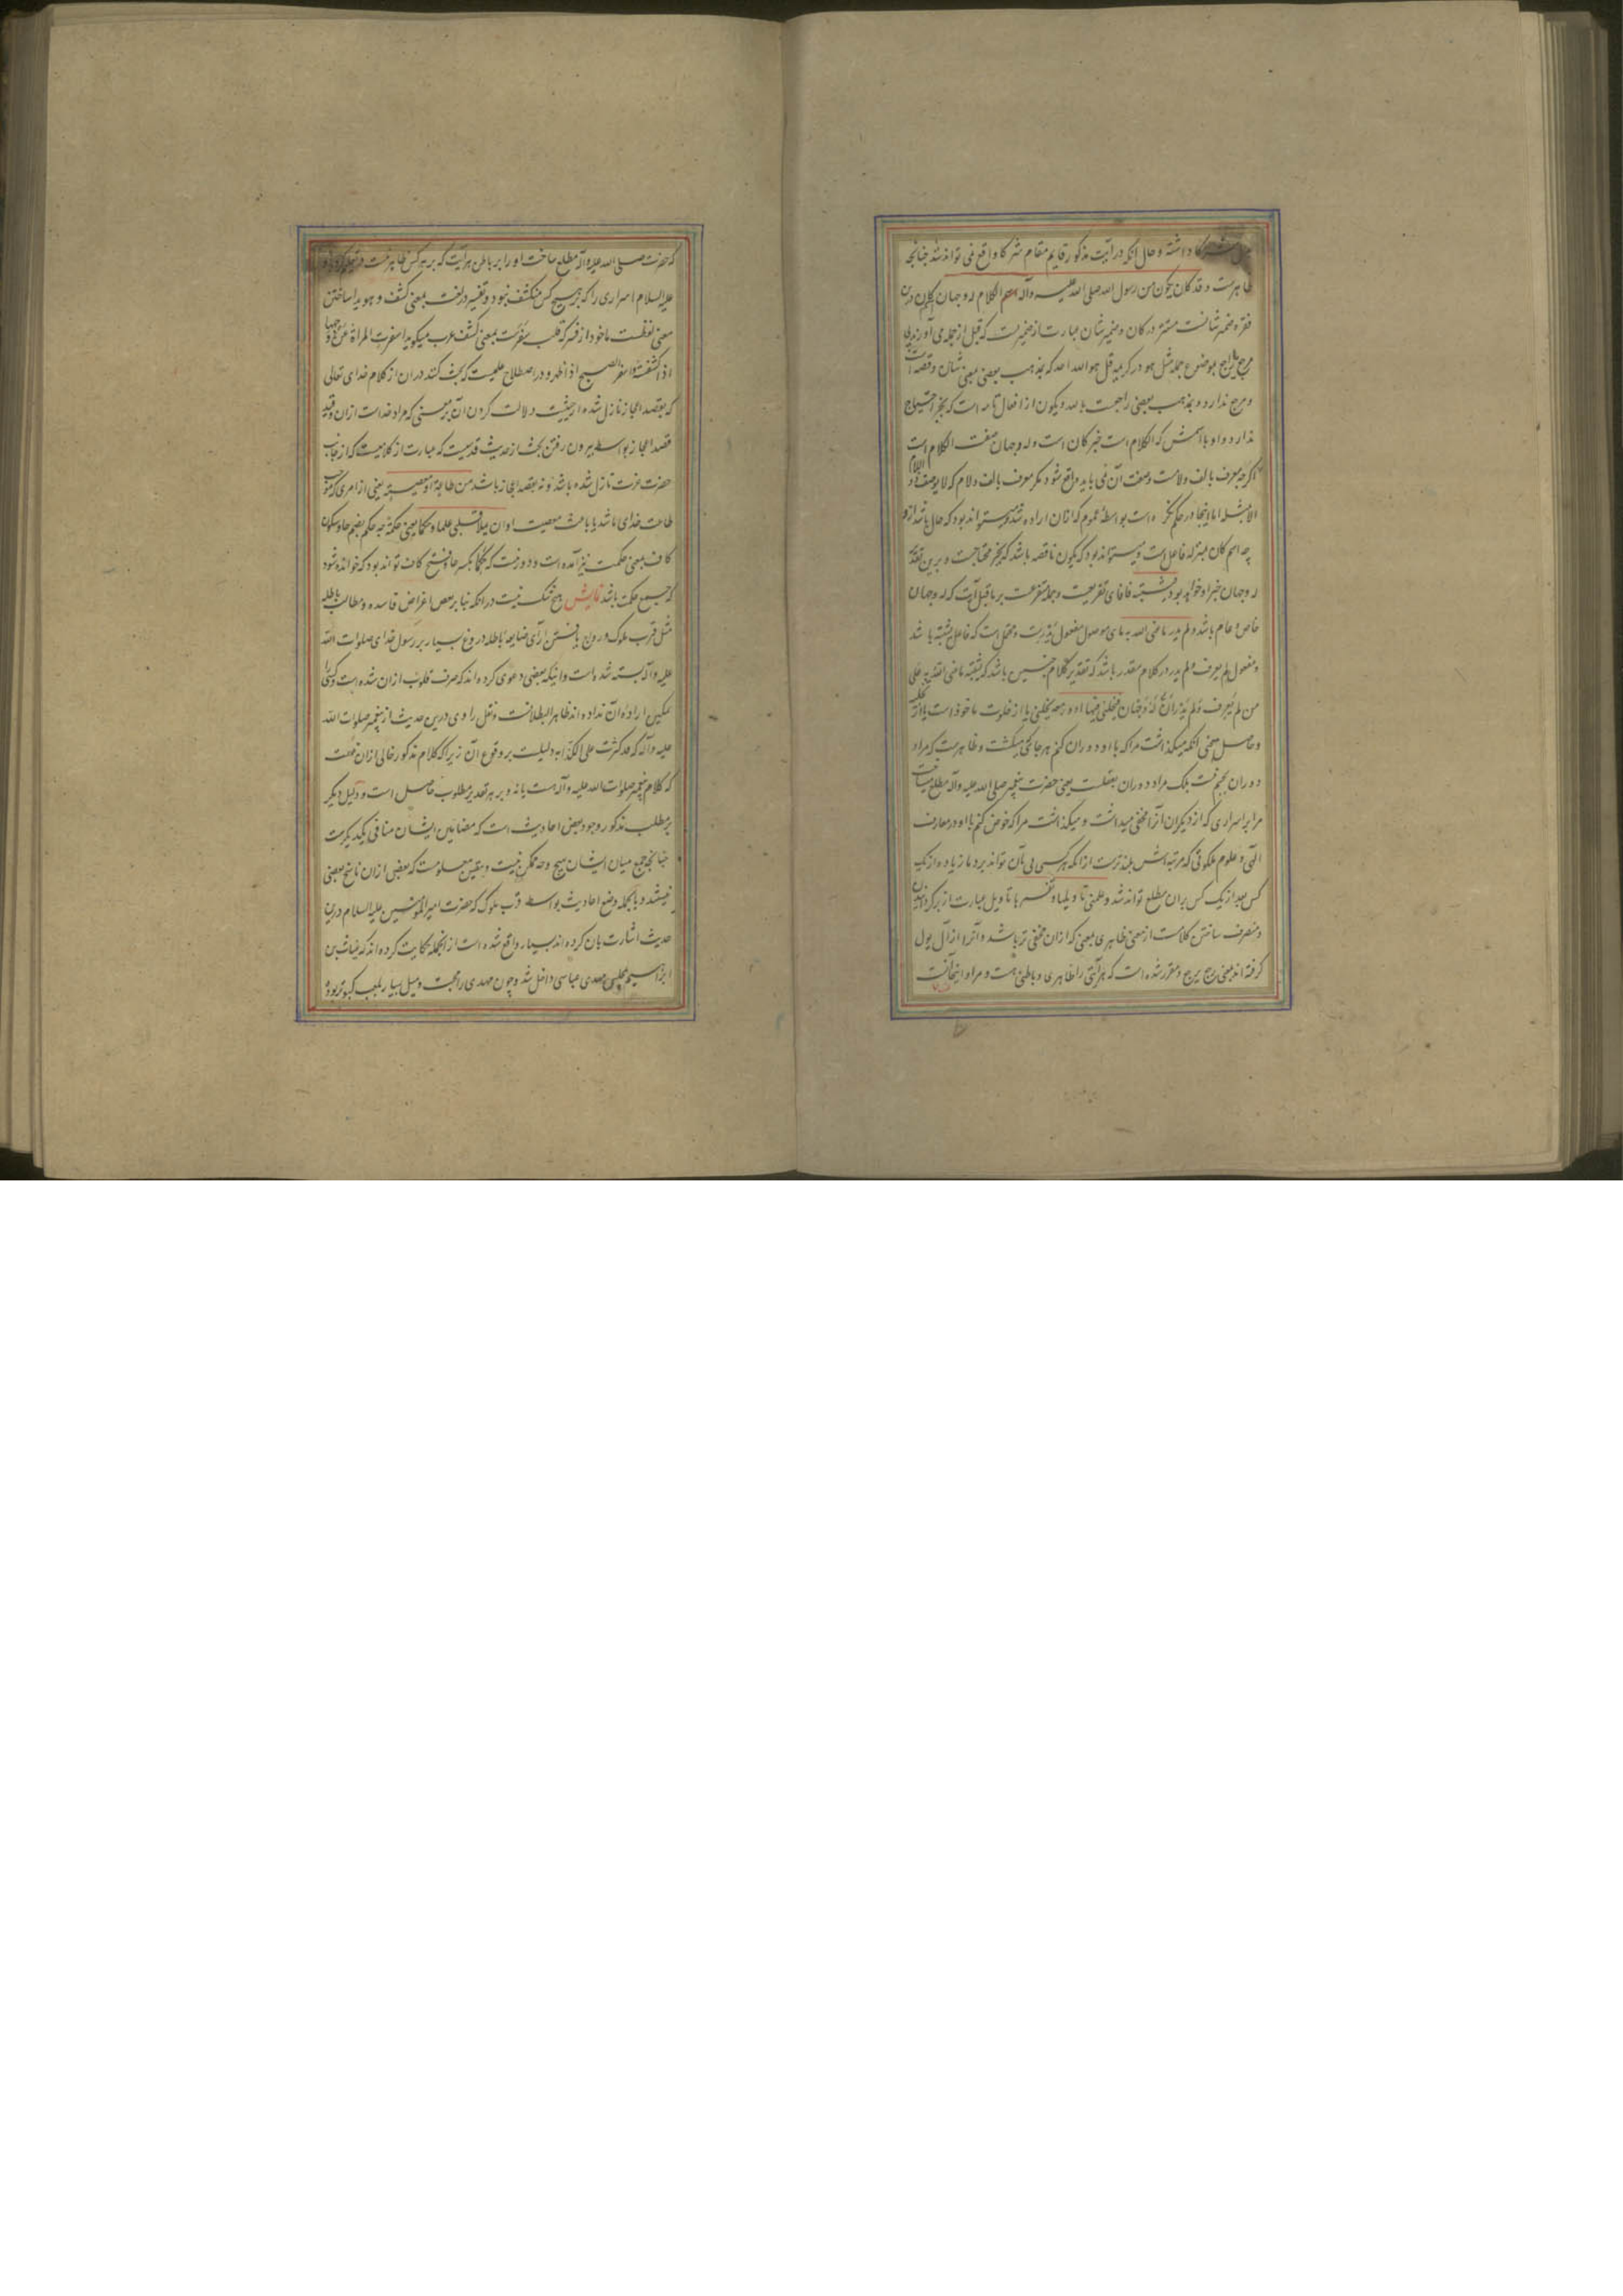 داشته و حال آنکه در آیت مذکور قایم مقام شرکا واقع نمی تواند شد چنانچه
ظاهرست و قد کان یکون من رسول الله صلی الله علیه وآله الکلام له وجهان کلام درین
فقره ضمیر شانست مستتر در کان و ضمیر شان عبارت از ضمیریست که قبل از جمله می آورند بی
مرجع راجع بموضوع جمله مثل هو در کریمه قل هو الله احد که بمذهب بعضی بمعنی شان و قصه است
و مرجع ندارد و بمذهب بعضی راجعست بالله و یکون از افعال تامه است که بخبر احتیاج
ندارد و او با اسمش که الکلام است خبر کان است و له وجهان صفت الکلام است
اگرچه معرف بالف و لامست و صفت آن می باید واقع شود مگر معرف بالف و لام که لا یوصف ذو اللام
الا بمثله اما اینجا در حکم نکره است بواسطه عموم که ازان اراده شده و میتواند بود که حال باشد ازو
چه اسم کان بمنزله فاعل است و میتواند بود که یکون ناقصه باشد که بخبر محتاجست و برین تقدیر
له وجهان خبر او خواهد بود فیشتبه فا فای تفریعیت و جمله متفرعست بر ما قبل آیت که له وجهان
خاص و عام باشد و لم یدر ما عنی الله به مای موصول مفعول یدرست و محتمل است که فاعل یشتبه باشد
و مفعول لم یعرف و لم یدر در کلام مقدر باشد که تقدیر کلام چنین باشد که یشتبه ما عنی الله به علی
من لم یعرف و لم یدر ان له وجهان فیخلنی فیها ادور معه یخلنی یا از خلوت ماخوذ است یا از تخلیه
و حاصل معنی آنکه میگذاشت مرا که با او دوران کنم هرجا که میگشت و ظاهرست که مراد
دوران بجسم نیست بلکه مراد دوران بعقلست یعنی حضرت پیغمبر صلی الله علیه وآله مطلع میساخت
مرا بر اسراری که از دیگران آنرا مخفی میداشت و میگذاشت مرا که خوض کنم با او در معارف
الهی و علوم ملکوتی که مرتبه اش بلندترست از آنکه هر کسی پی بآن تواند برد یا زیاده از یک
کس بعد از یک کس بران مطلع تواند شد و علمنی تاویلها و تفسیرها تاویل عبارت از برگردانیدن
و منصرف ساختن کلامست از معنی ظاهری بمعنی که ازان مخفی تر باشد و آنرا از آل یول
گرفته اند بمعنی رجع یرجع و مقرر شده است که هر آیتی را ظاهری و باطنی هست و مراد اینجا آنست
که حضرت صلی الله علیه وآله مطلع ساخت او را بر باطن هر آیت که بر هر کس ظاهر نیست
علیه السلام اسراری را که بر هیچ کس منکشف نبود و تفسیر در لغت بمعنی کشف و هویدا ساختن
معنی لفظست ماخوذ از فسر که قلب سفرست بمعنی کشف عرب میگوید اسفرت المراة عن وجهها
اذا کشفته و اسفر الصبح اذا ظهر و در اصطلاح علمیست که بحث کنند دران از کلام خدای تعالی
که بقصد اعجاز نازل شده از حیثیت دلالت کردن آن بر معنی که مراد خداست ازان و قید
قصد اعجاز بواسطه بیرون رفتن بحث از حدیث قدسیست که عبارت از کلامیست که از جانب
حضرت عزت نازل شده باشد و نه بقصد اعجاز باشد من طاعة او معصیة یعنی از امری که موجب
طاعت خدای باشد یا باعث معصیت او ان یملا قلبی علما و حکما یعنی حکمة چه حکم بضم حا و سکون
کاف بمعنی حکمت نیز آمده است و دور نیست که حکما بکسر حا و فتح کاف تواند بود که خوانده شود
که جمع حکمت باشد نمایش هیچ شک نیست در آنکه بنا بر بعض اغراض فاسده و مطالب باطله
مثل قرب ملوک و رواج یافتن آرای ضایعه باطله دروغ بسیار بر رسول خدای صلوات الله
علیه وآله بسته شده است و اینکه بعضی دعوی کرده اند که صرف قلوب ازان شده است و کسی را
تمکین اراده آن نداده اند ظاهر البطلانست و نقل راوی درین حدیث از پیغمبر صلوات الله
علیه وآله که قد کثرت علی الکذابه دلیلست بر وقوع آن زیرا که کلام مذکور خالی ازان نیست
که کلام پیغمبر صلوات الله علیه وآله هست یا نه و بر هر تقدیر مطلوب حاصل است و دلیل دیگر
بر مطلب مذکور وجود بعض احادیث است که مضامین ایشان منافی یکدیگرست
چنانچه جمع میان ایشان بهیچ وجه ممکن نیست و بیقین معلومست که بعضی ازان ناسخ بعضی
نیستند و بالجمله وضع احادیث بواسطه قرب ملوک که حضرت امیر المؤمنین علیه السلام درین
حدیث اشارت بان کرده اند بسیار واقع شده است از انجمله حکایت کرده اند که غیاث بن
ابراهیم بمجلس مهدی عباسی داخل شد و چون مهدی را محبت و میل بسیار بلعب کبوتر بود